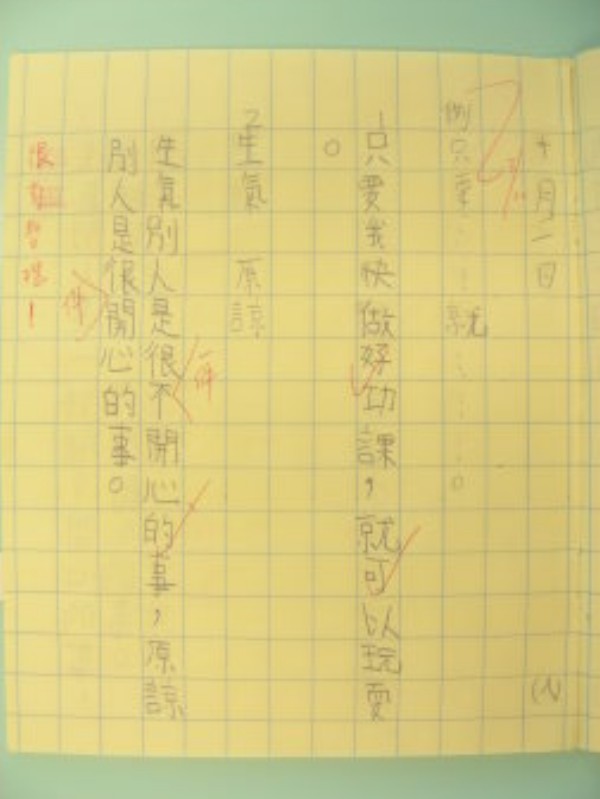 十月一日
例只要……就……。
1只要我快做好功課，就可以玩耍
。
2生氣 原諒
生氣別人是很不開心的事，原諒
別人是很開心的事。
件
件
很有哲理！